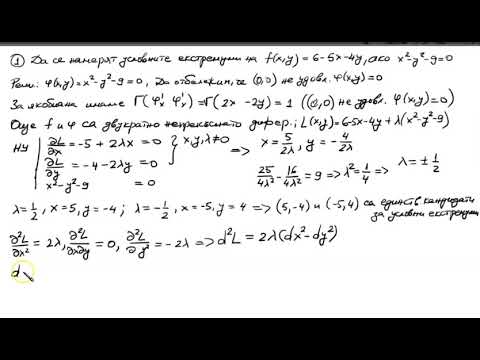 ① Да се намерят условните екстремуми на f(x,y) = 6-5x-4y, ако x²-y²-9=0
Реш.: φ(x,y)=x²-y²-9=0, Да отбележим, че (0,0) не удовл. φ(x,y)=0
За якобиана имаме Γ(φ'x φ'y) = Γ(2x -2y) = 1 ((0,0) не удовл. φ(x,y)=0)
Още f и φ са двукратно непрекъснато дифер.; L(x,y)=6-5x-4y+λ(x²-y²-9)
НУ | ∂L/∂x = -5 + 2λx = 0 } x,y,λ≠0 => x = 5/2λ, y = -4/2λ
| ∂L/∂y = -4 -2λy = 0
| x²-y²-9 = 0 25/4λ² - 16/4λ² = 9 => λ² = 1/4 => λ = ± 1/2
λ = 1/2, x = 5, y = -4; λ = -1/2, x = -5, y = 4 => (5,-4) и (-5,4) са единств. кандидати
за условни екстремуми
∂²L/∂x² = 2λ, ∂²L/∂x∂y = 0, ∂²L/∂y² = -2λ => d²L = 2λ(dx²-dy²)
d